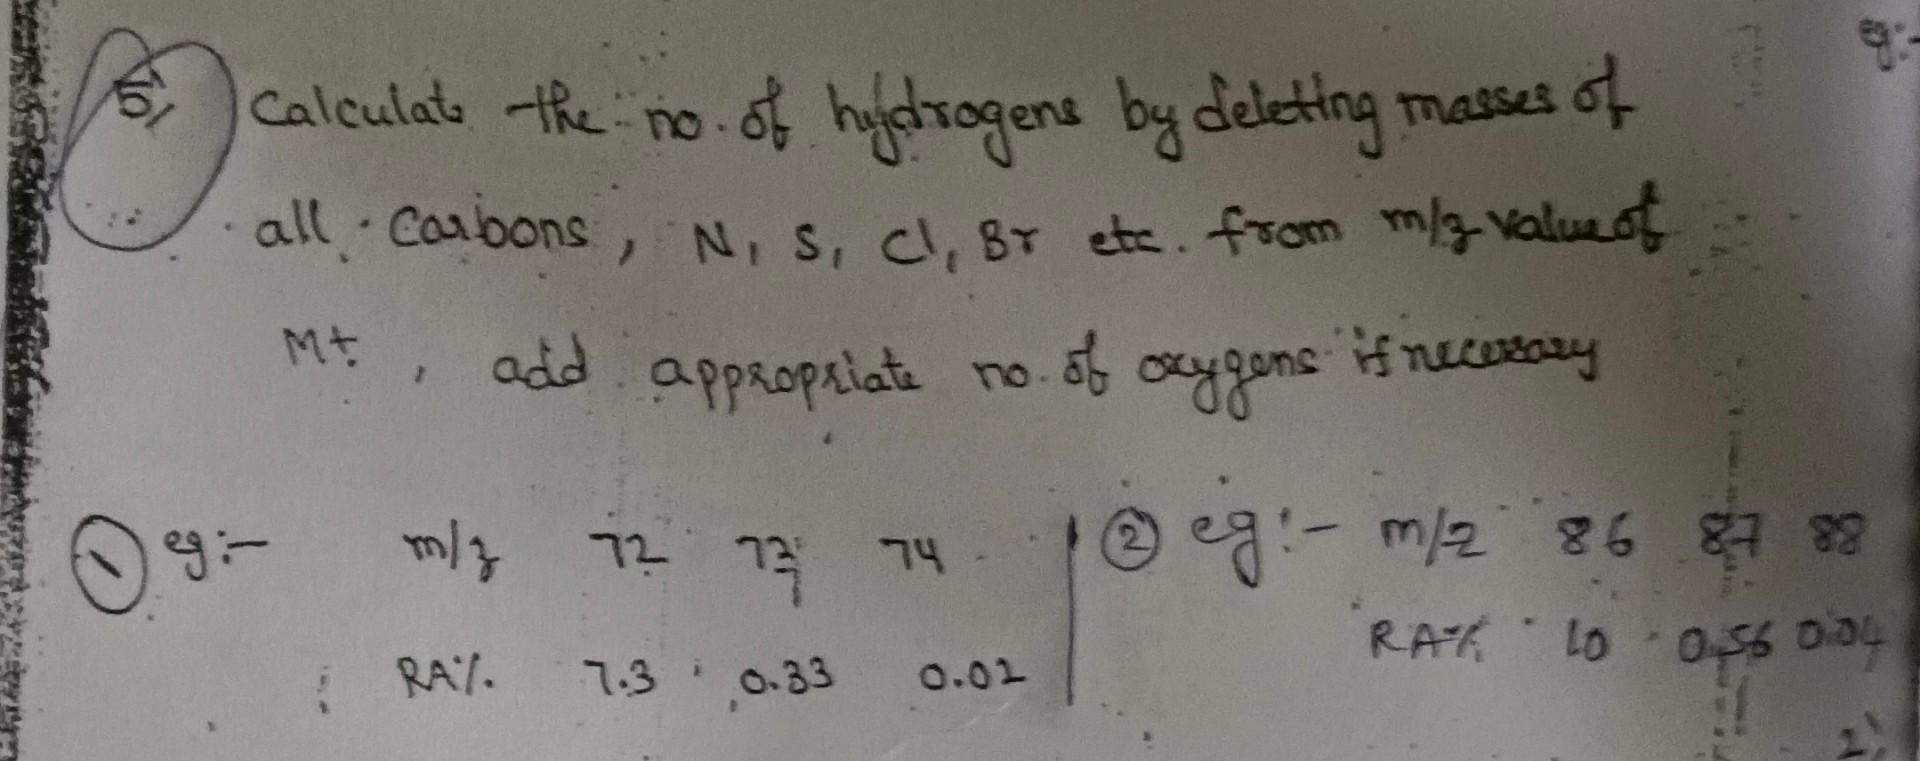 eg:-
5, Calculate the no. of hydrogens by deleting masses of
all carbons, N, S, Cl, Br etc. from m/z value of
M+., add appropriate no. of oxygens if necessary
1 eg:- m/z 72 73 74
RA%. 7.3 0.33 0.02
2 eg:- m/z 86 87 88
RA% 10 0.56 0.04